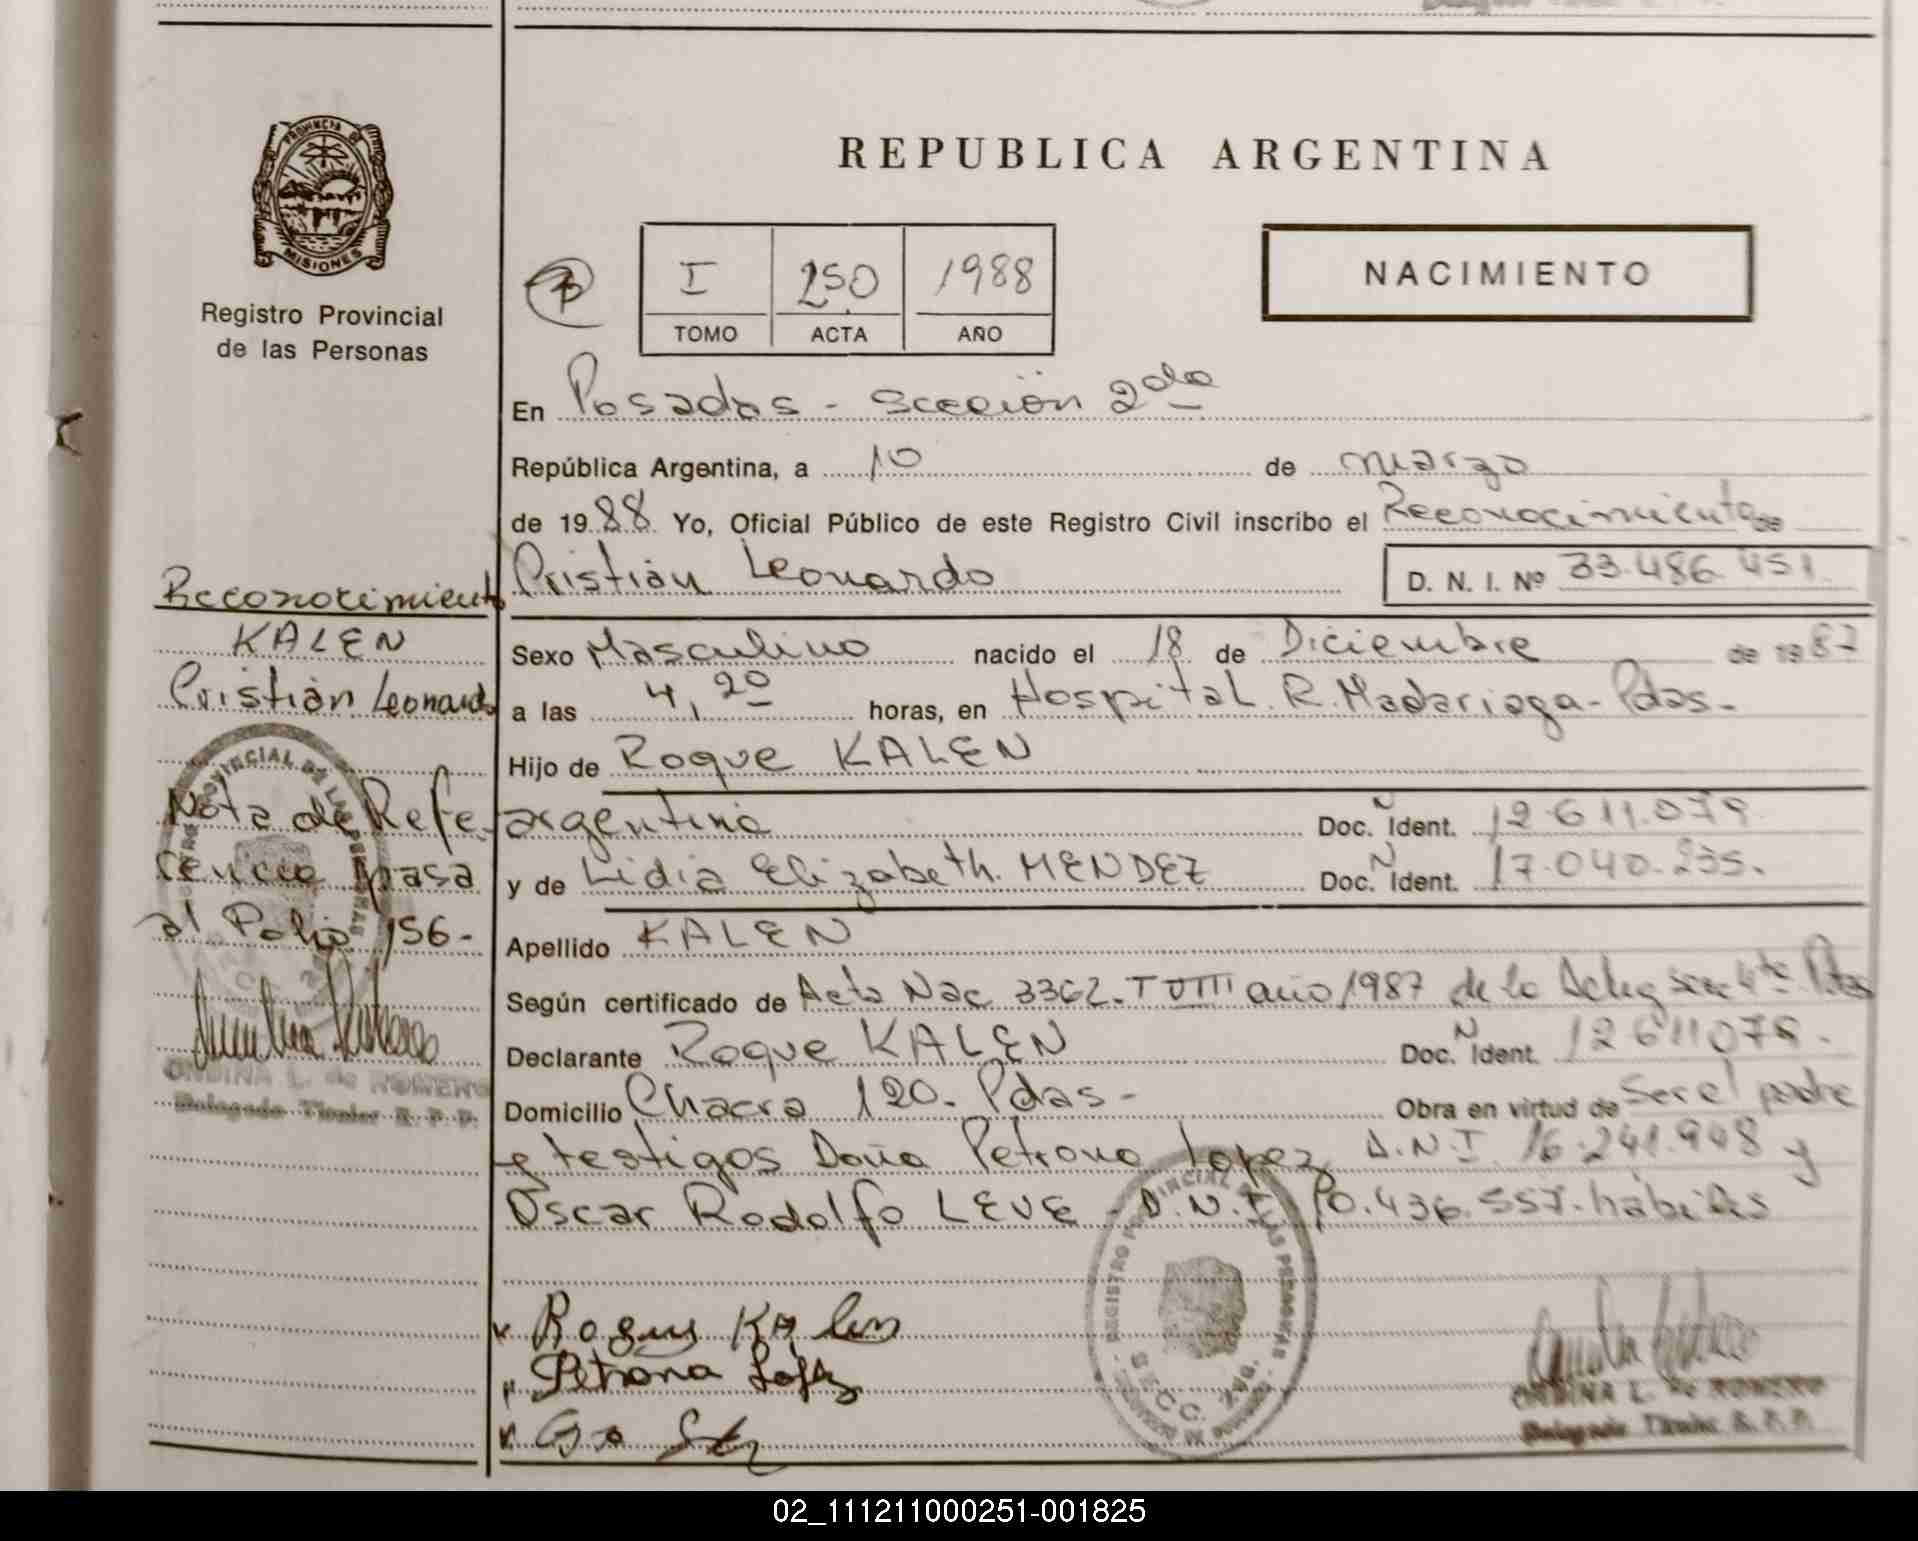 PROVINCIA DE
MISIONES
Registro Provincial
de las Personas
REPUBLICA ARGENTINA
I 250 1988
TOMO ACTA AÑO
NACIMIENTO
En Posadas - Sección 2da
República Argentina, a 10 de marzo
de 1988 Yo, Oficial Público de este Registro Civil inscribo el Reconocimiento de
Cristián Leonardo D. N. I. Nº 33.486.451
Reconocimiento
KALEN
Cristián Leonardo
Nota de Refe-
rencia pasa
al Folio 156-
ONDINA L. de ROMERO
Delegado Titular R. P. P.
Sexo Masculino nacido el 18 de Diciembre de 1987
a las 4,20 horas, en Hospital R. Madariaga - Pdas-
Hijo de Roque KALEN
argentino Doc. Ident. 12.611.079
y de Lidia Elizabeth MENDEZ Doc. Ident. 17.040.235.
Apellido KALEN
Según certificado de Acta Nac 3362. T VIII año 1987 de la Deleg secc 4ta Pdas
Declarante Roque KALEN Doc. Ident. 12611079.
Domicilio Chacra 120. Pdas- Obra en virtud de ser el padre
y testigos Doña Petrona Lopez D.N.I. 16.241.948 y
Oscar Rodolfo LEVE - D.N.I. 10.436.557. hábiles
Roque Kalen
Petrona Lopez
REGISTRO PROVINCIAL DE LAS PERSONAS
SECC. 2da.
ONDINA L. de ROMERO
Delegado Titular R. P. P.
02_111211000251-001825